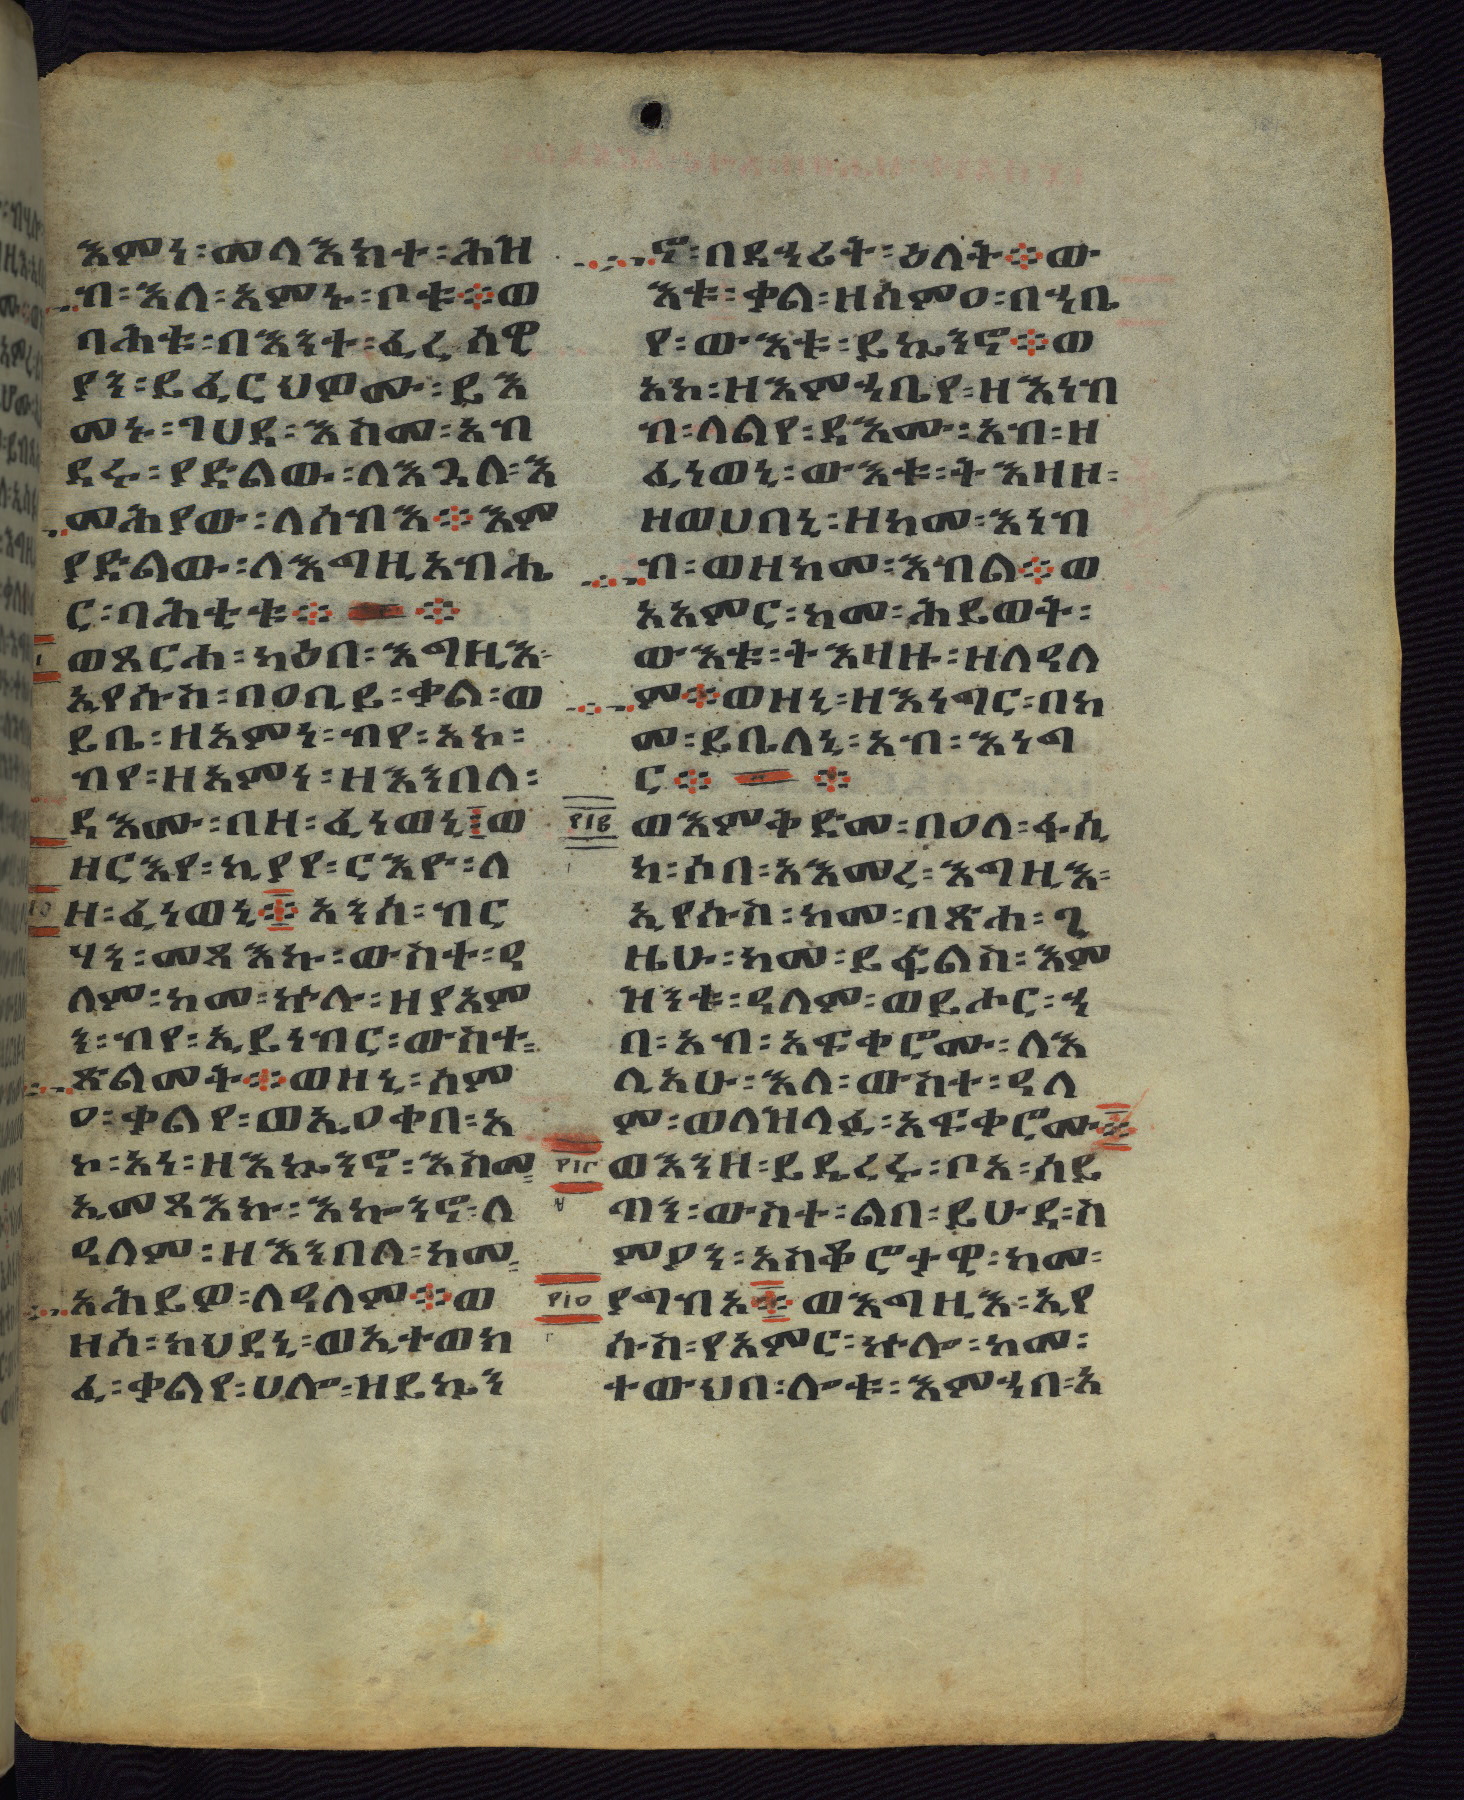 እምነ፡ መላእክተ፡ ሕዝ
ብ፡ እለ፡ አምኑ፡ ቦቱ፨ ወ
ባሕቱ፡ በእንተ፡ ፈሪሳዊ
ያን፡ ይፈርህዎሙ፡ ይእ
መኑ፡ ገሀደ፡ እስመ፡ አብ
ደሩ፡ ያድልው፡ ለእጓለ፡ እ
መሕያው፡ ለሰብእ፨ እም
ያድልው፡ ለእግዚአብሔ
ር፡ ባሕቲቱ፨ ፨
ወጸርሐ፡ ካዕበ፡ እግዚእ፡
ኢየሱስ፡ በዐቢይ፡ ቃል፡ ወ
ይቤ፡ ዘአምነ፡ ብየ፡ አኮ፡
ብየ፡ ዘአምነ፡ ዘእንበለ፡
ዳእሙ፡ በዘ፡ ፈነወኒ፨ ወ
ዘርእየ፡ ኪያየ፡ ርእዮ፡ ለ
ዘ፡ ፈነወኒ፨ አንሰ፡ ብር
ሃን፡ መጻእኩ፡ ውስተ፡ ዓ
ለም፡ ከመ፡ ኵሉ፡ ዘያአም
ን፡ ብየ፡ ኢይነብር፡ ውስተ፡
ጽልመት፨ ወዘኒ፡ ሰም
ዐ፡ ቃልየ፡ ወኢዐቀበ፡ አ
ኮ፡ አነ፡ ዘእኴንኖ፡ እስመ፡
ኢመጻእኩ፡ እኰንኖ፡ ለ
ዓለም፡ ዘእንበለ፡ ከመ፡
አሕይዎ፡ ለዓለም፨ ወ
ዘሰ፡ ክህደኒ፡ ወኢተወክ
ፈ፡ ቃልየ፡ ሀሎ፡ ዘይኴን
ኖ፡ በደኃሪት፡ ዕለት፨ ው
እቱ፡ ቃል፡ ዘሰምዐ፡ በኀቤ
የ፡ ውእቱ፡ ይኴንኖ፨ ወ
አኮ፡ ዘእምኀቤየ፡ ዘእነብ
ብ፡ ለልየ፡ ዳእሙ፡ አብ፡ ዘ
ፈነወኒ፡ ውእቱ፡ ትእዛዘ፡
ዘወሀበኒ፡ ዘከመ፡ እነብ
ብ፡ ወዘከመ፡ እብል፨ ወ
አአምር፡ ከመ፡ ሕይወት፡
ውእቱ፡ ትእዛዙ፡ ዘለዓለ
ም፨ ወዘኒ፡ ዘእነግር፡ በከ
መ፡ ይቤለኒ፡ አብ፡ እነግ
ር፨ ፨
፻፲፪
ወእምቅድመ፡ በዐለ፡ ፋሲ
ካ፡ ሶበ፡ አእመረ፡ እግዚእ፡
ኢየሱስ፡ ከመ፡ በጽሐ፡ ጊ
ዜሁ፡ ከመ፡ ይፍልስ፡ እም
ዝንቱ፡ ዓለም፡ ወይሖር፡ ኀ
በ፡ አብ፡ አፍቀሮሙ፡ ለእ
ሊአሁ፡ እለ፡ ውስተ፡ ዓለ
ም፡ ወለዝላፉ፡ አፍቀሮሙ፨
፻፲፫
ወእንዘ፡ ይዴረሩ፡ ቦአ፡ ሰይ
ጣን፡ ውስተ፡ ልበ፡ ይሁዳ፡ ስ
ምዖን፡ አስቆሮቱዊ፡ ከመ፡
፻፲፬
ያግብአ፨ ወእግዚእ፡ ኢየ
ሱስ፡ የአምር፡ ኵሎ፡ ከመ፡
ተውህበ፡ ሎቱ፡ እምኀበ፡ አ